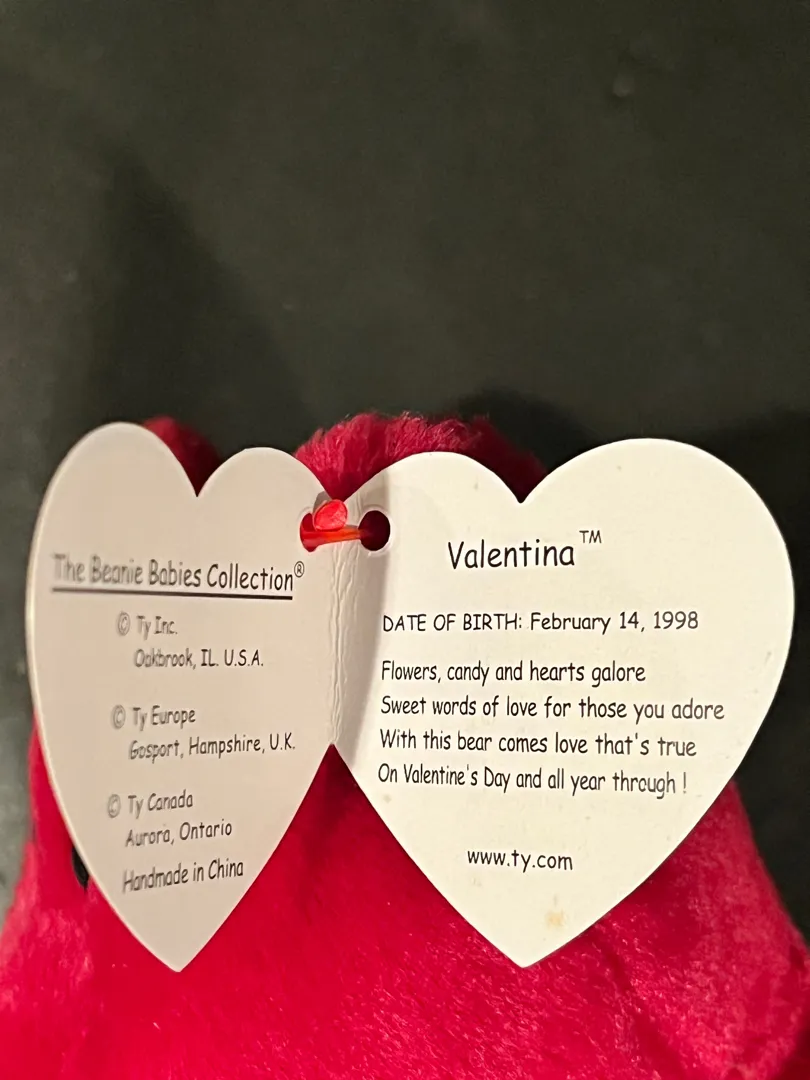 The Beanie Babies Collection®
© Ty Inc.
Oakbrook, IL. U.S.A.
© Ty Europe
Gosport, Hampshire, U.K.
© Ty Canada
Aurora, Ontario
Handmade in China
Valentina™
DATE OF BIRTH: February 14, 1998
Flowers, candy and hearts galore
Sweet words of love for those you adore
With this bear comes love that's true
On Valentine's Day and all year through !
www.ty.com